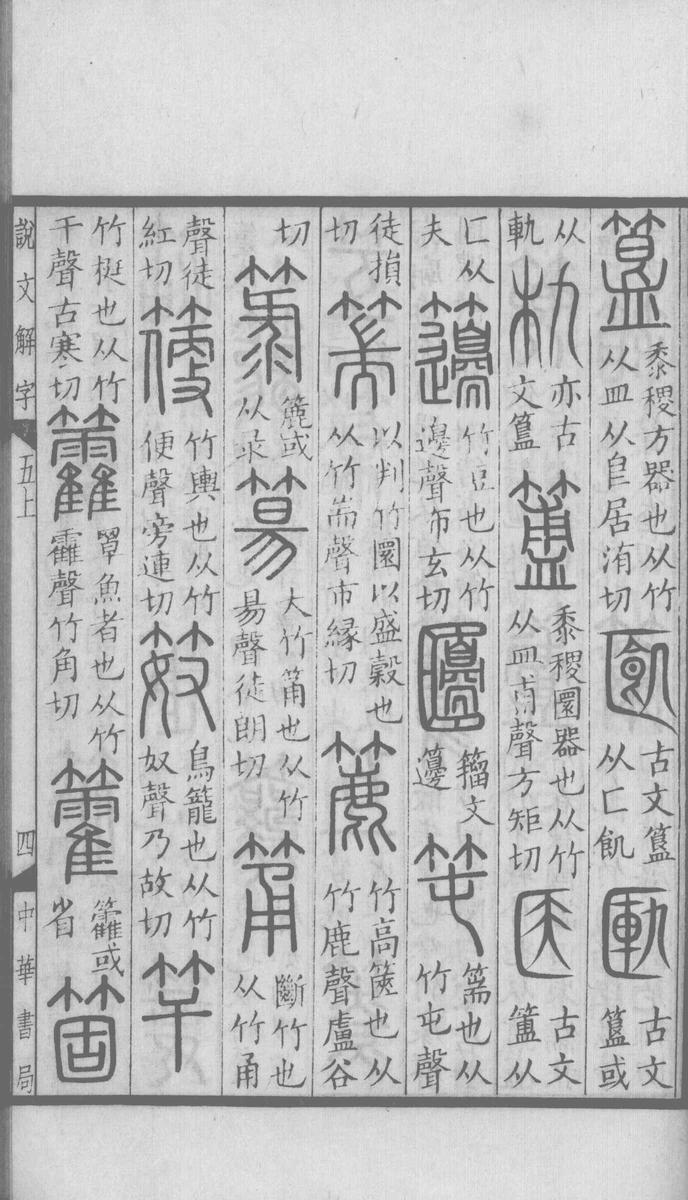 簋黍稷方器也从竹从皿从皀居洧切𠥗古文簋从匚飢匭古文簋或
从軌朹亦古文簋簠黍稷圜器也从竹从皿甫聲方矩切古文簠从
匚从夫籩竹豆也从竹邊聲布玄切籀文籩𥫱篅也从竹屯聲
徒損切篅以判竹圜以盛穀也从竹耑聲市緣切簏竹高篋也从竹鹿聲盧谷
切箓簏或从录𥯕大竹筩也从竹昜聲徒朗切筩斷竹也从竹甬
聲徒紅切箯竹輿也从竹便聲旁連切笯鳥籠也从竹奴聲乃故切竿
竹梃也从竹干聲古寒切籱罩魚者也从竹靃聲竹角切籗籱或省箇
說文解字 五上 四 中華書局